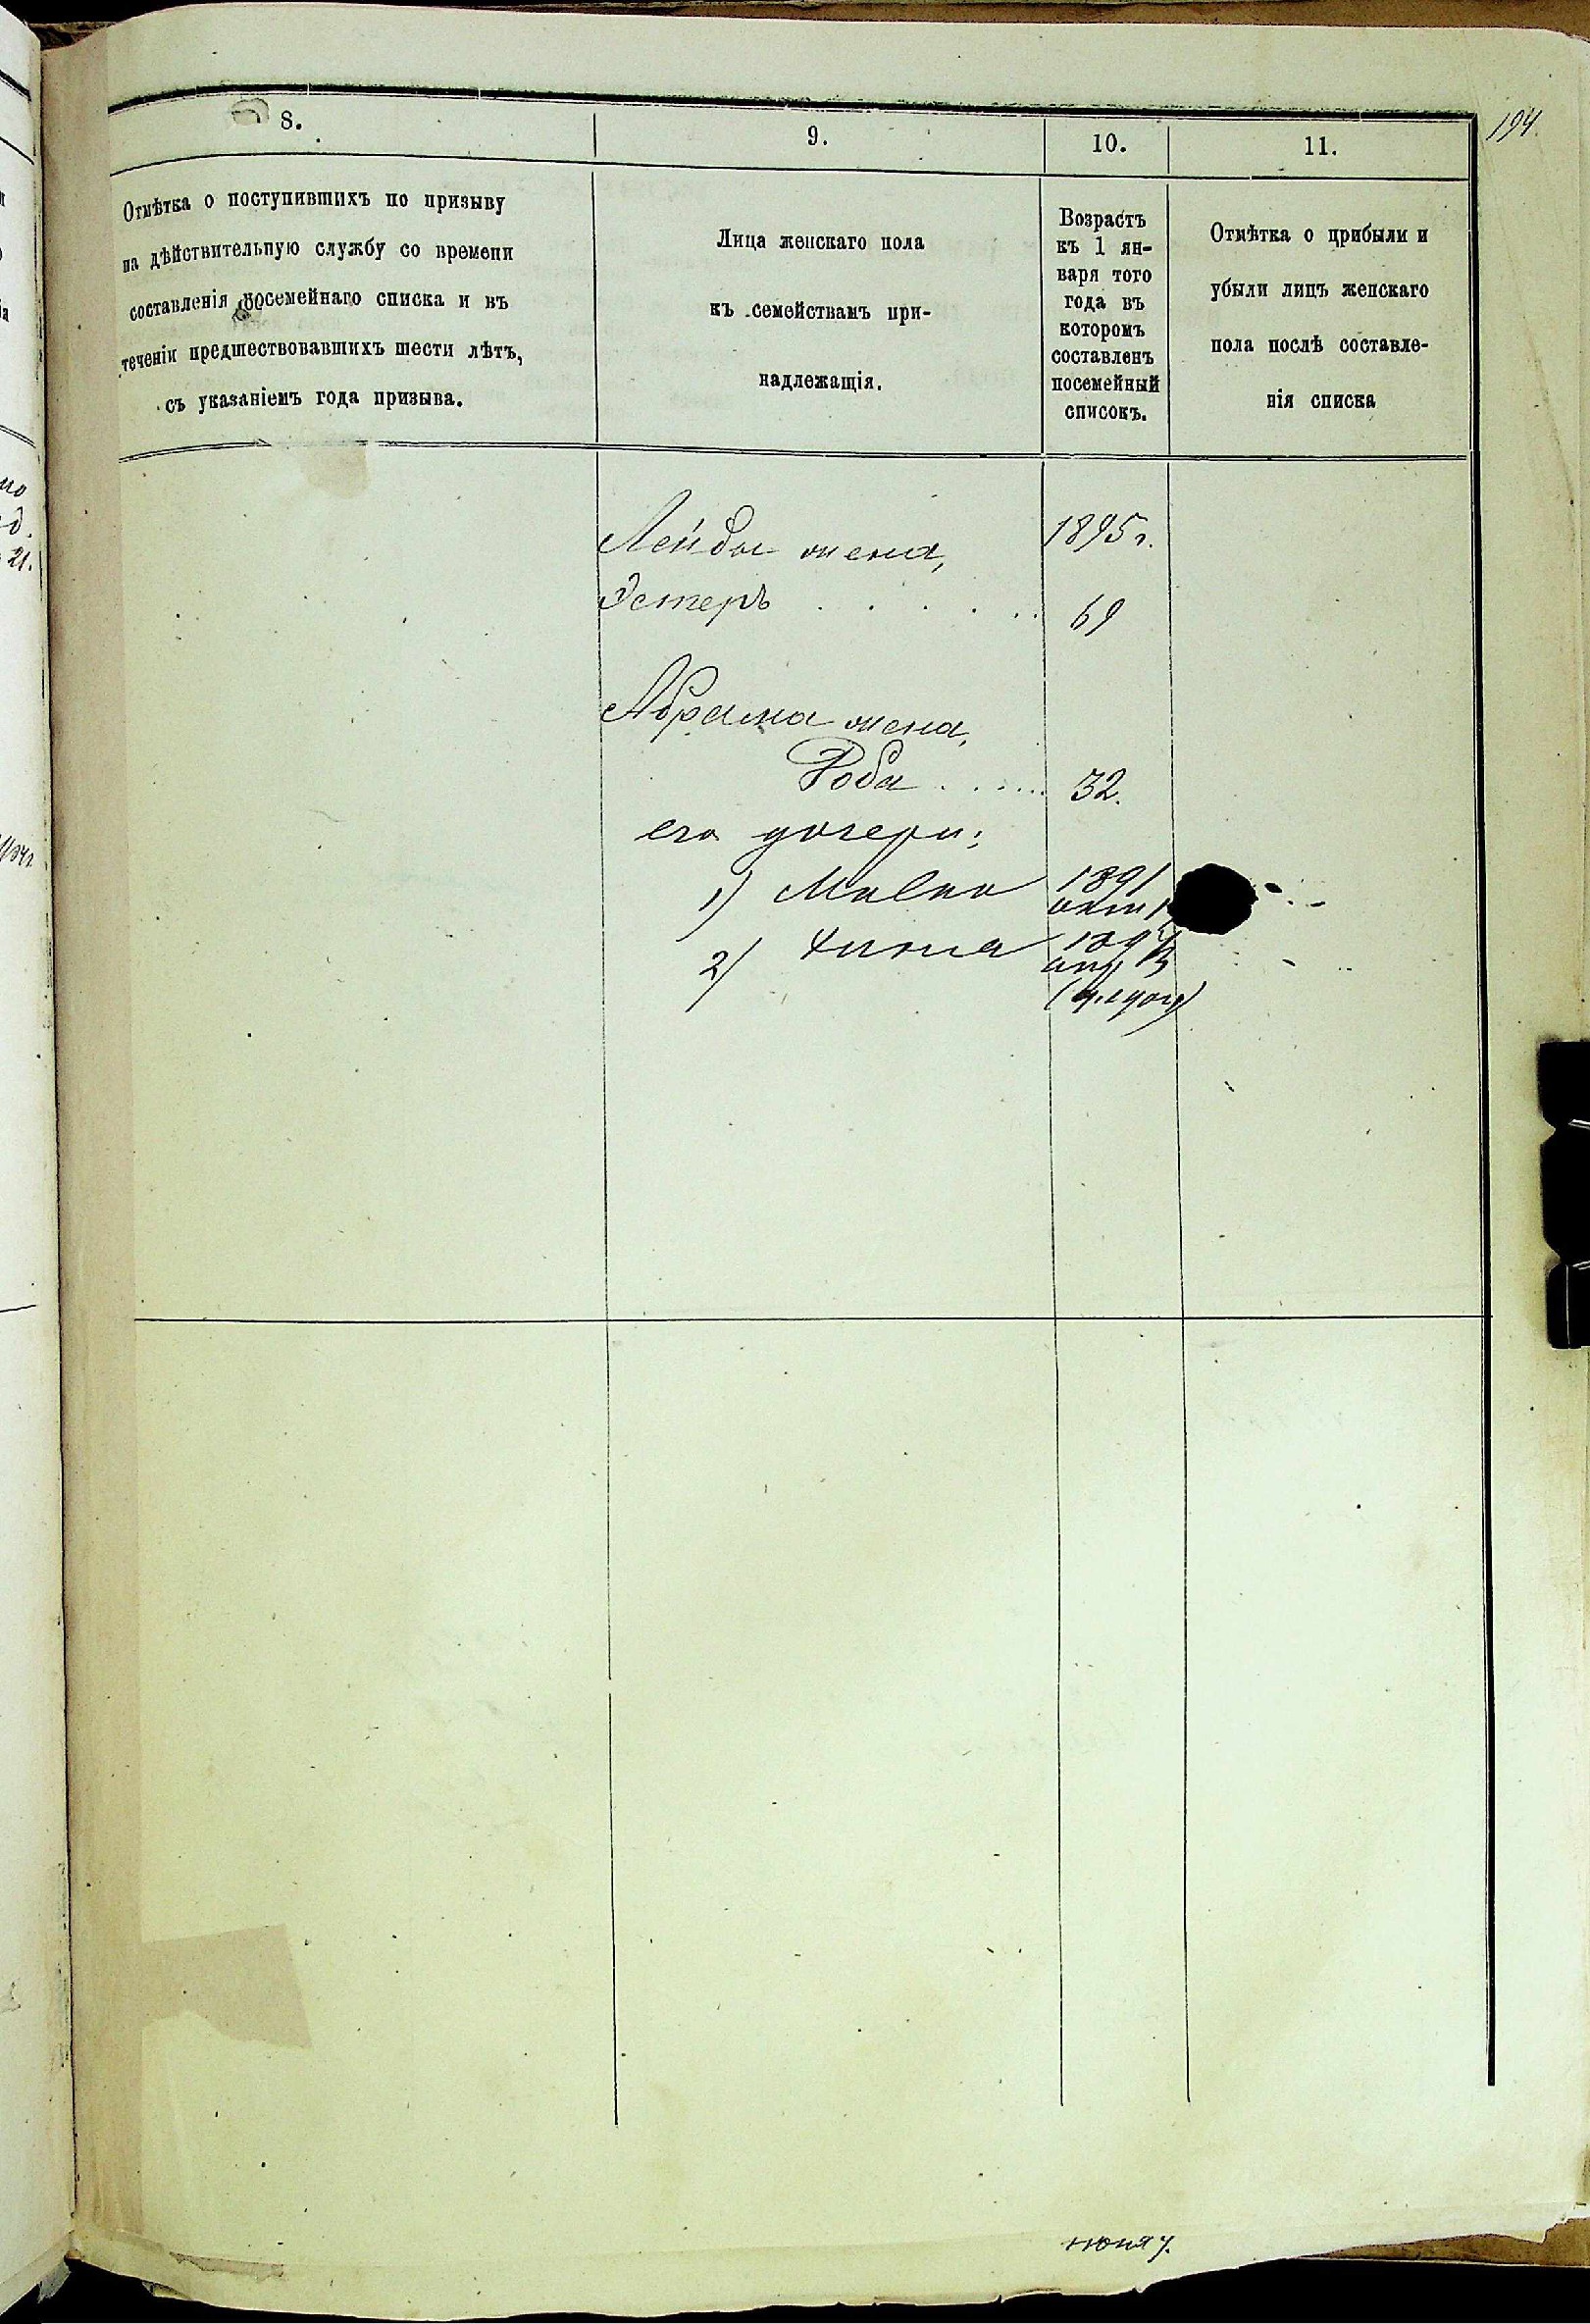 194.
8.
9.
10.
11.
Отмѣтка о поступившихъ по призыву
на дѣйствительную службу со времени
составленія посемейнаго списка и въ
теченіи предшествовавшихъ шести лѣтъ,
съ указаніемъ года призыва.
Лица женскаго пола
къ семействамъ при-
надлежащія.
Возрастъ
къ 1 ян-
варя того
года въ
которомъ
составленъ
посемейный
списокъ.
Отмѣтка о прибыли и
убыли лицъ женскаго
пола послѣ составле-
нія списка
1895 г.
Лейбы жена,
Эстеръ . . . . . 69
Абрама жена,
Рода . . . . . 32.
его дочери:
1) Малка 1891
2)